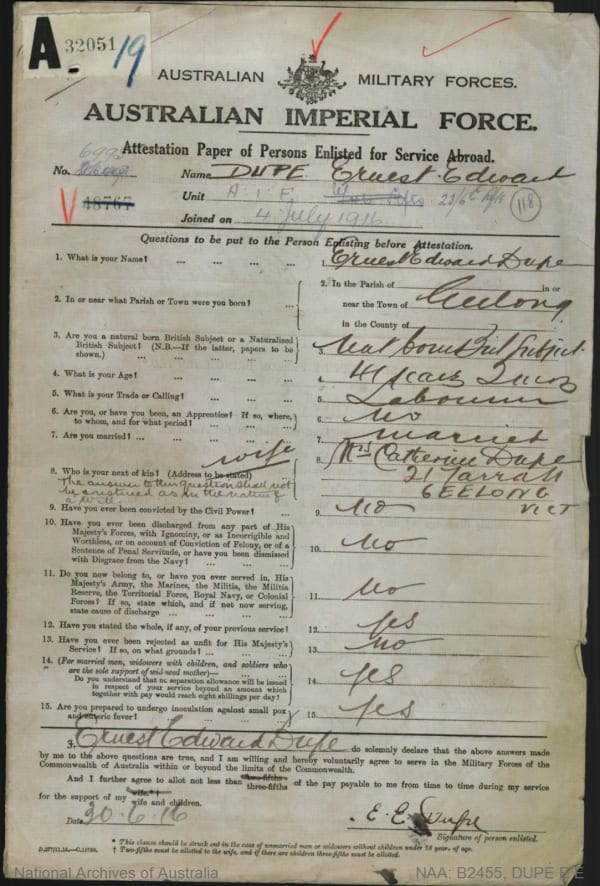 A 32051
19
AUSTRALIAN MILITARY FORCES.
AUSTRALIAN IMPERIAL FORCE.
Attestation Paper of Persons Enlisted for Service Abroad.
No. 6993 Name DUPE Ernest Edward
48767 Unit A.I.F. 23/6
118
Joined on 4 July 1916
Questions to be put to the Person Enlisting before Attestation.
1. What is your Name? ... ... ... ... 1. Ernest Edward Dupe
2. In or near what Parish or Town were you born? ... 2. In the Parish of in or
near the Town of Geelong
in the County of
3. Are you a natural born British Subject or a Naturalized
British Subject? (N.B.—If the latter, papers to be
shown.) ... ... ... ... 3. Nat born Brit Subject
4. What is your Age? ... ... ... ... 4. 41 years
5. What is your Trade or Calling? ... ... ... 5. Labourer
6. Are you, or have you been, an Apprentice? If so, where,
to whom, and for what period? ... ... ... 6. No
7. Are you married? ... ... ... ... 7. married
wife
8. Who is your next of kin? (Address to be stated) 8. Mrs Catherine Dupe
The answer to this Question shall not
be construed as in the nature of
a Will.
21
GEELONG
VICT
9. Have you ever been convicted by the Civil Power? ... 9. No
10. Have you ever been discharged from any part of His
Majesty's Forces, with Ignominy, or as Incorrigible and
Worthless, or on account of Conviction of Felony, or of a
Sentence of Penal Servitude, or have you been dismissed
with Disgrace from the Navy? ... ... 10. No
11. Do you now belong to, or have you ever served in, His
Majesty's Army, the Marines, the Militia, the Militia
Reserve, the Territorial Force, Royal Navy, or Colonial
Forces? If so, state which, and if not now serving,
state cause of discharge ... ... ... 11. No
12. Have you stated the whole, if any, of your previous service? 12. yes
13. Have you ever been rejected as unfit for His Majesty's
Service? If so, on what grounds? ... ... 13. no
14. (For married men, widowers with children, and soldiers who
are the sole support of widowed mother)—
Do you understand that no separation allowance will be issued
in respect of your service beyond an amount which
together with pay would reach eight shillings per day? 14. yes
15. Are you prepared to undergo inoculation against small pox
and enteric fever? ... ... ... 15. yes
I, Ernest Edward Dupe do solemnly declare that the above answers made
by me to the above questions are true, and I am willing and hereby voluntarily agree to serve in the Military Forces of the
Commonwealth of Australia within or beyond the limits of the Commonwealth.
And I further agree to allot not less than two-fifths three-fifths of the pay payable to me from time to time during my service
for the support of my wife* wife and children.
Date 30.6.16 E. E. Dupe
Signature of person enlisted.
* This clause should be struck out in the case of unmarried men or widowers without children under 18 years of age.
† Two-fifths must be allotted to the wife, and if there are children three-fifths must be allotted.
National Archives of Australia NAA: B2455, DUPE E E